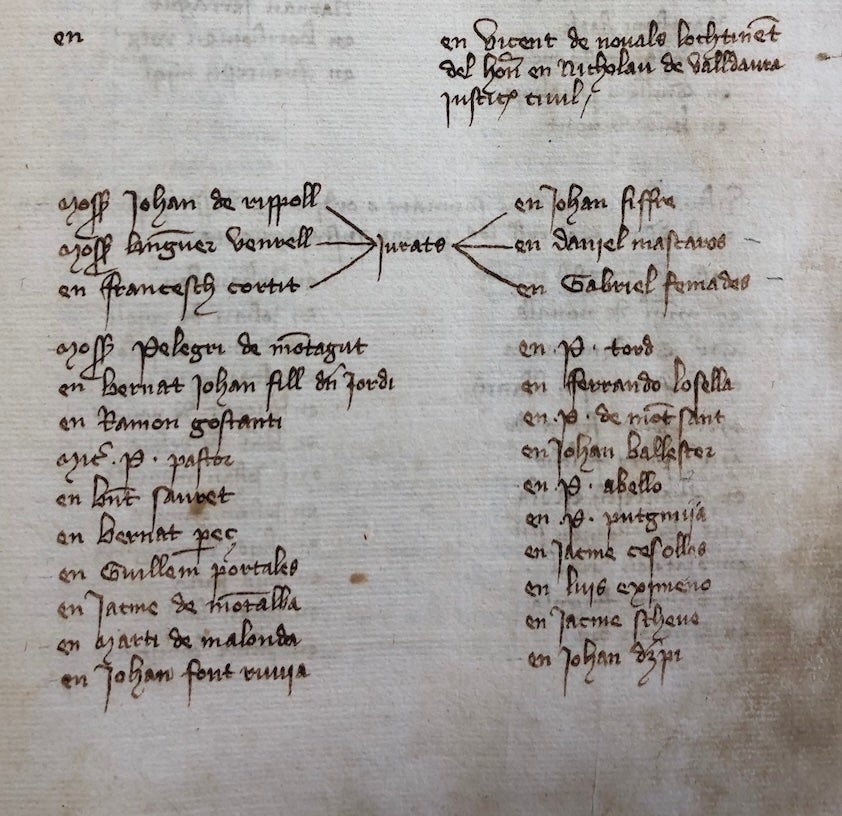 en
en vicent de novals lochtinēt
del hōn en Nicholau de valldaura
Justiçͻ civil /
moss Johan de rippoll
moss bn̄guer venrell
en ffrancesch cortit
Jurats
en Johan siffre
en daniel mascaros
en Gabriel femades
moss Pelegri de mōtagut
en bernat Johan fill dn̄ Jordi
en Ramon gostanti
Mic̄ · P · pastor
en bn̄t sauret
en bernat peç
en Guillem portales
en Jacme de mōtalba
en Marti de malonda
en Johan font ruvia
en · P · tord
en fferrando losella
en · P · de mōt sant
en Johan ballester
en · P · abello
en · P · putgmija
en Jacme cesolles
en luis eximeno
en Jacme scheve
en Johan